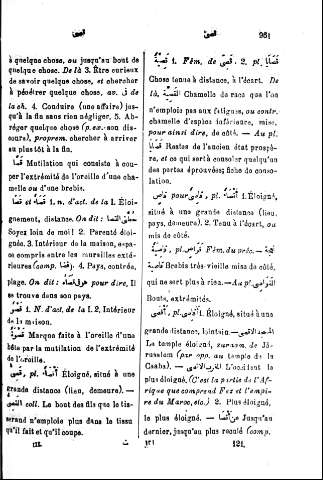 قصى
قصى
961
à quelque chose, ou jusqu'au bout de
quelque chose. De là 3. Être curieux
de savoir quelque chose, et chercher
à pénétrer quelque chose, av. في de
la ch. 4. Conduire (une affaire) jus-
qu'à la fin sans rien négliger. 5. Ab-
réger quelque chose (p. ex. son dis-
cours), proprem. chercher à arriver
au plus tôt à la fin.
قصا Mutilation qui consiste à cou-
per l'extrémité de l'oreille d'une cha-
melle ou d'une brebis.
1. n. d'act. de la I. Éloi-
gnement, distance. On dit :
Soyez loin de moi! 2. Parenté éloi-
gnée. 3. Intérieur de la maison, espa-
ce compris entre les murailles exté-
rieures (comp. قصا). 4. Pays, contrée,
plage. On dit : pour dire, Il
se trouve dans son pays.
1. N. d'act. de la I. 2. Intérieur
de la maison.
Marque faite à l'oreille d'une
bête par la mutilation de l'extrémité
de l'oreille.
pl. Éloigné, situé à une
grande distance (lieu, demeure). —
coll. Le bout des fils que le tis-
serand n'emploie plus dans le tissu
qu'il fait et qu'il coupe.
III.
قصية 1. Fém. de قصى. 2. pl. قصايا
Chose tenue à distance, à l'écart. De
là Chamelle de race que l'on
n'emploie pas aux fatigues, ou contr.
chamelle d'espèce inférieure, mise,
pour ainsi dire, de côté. — Au pl.
Restes de l'ancien état prospè-
re, et ce qui sert à consoler quelqu'un
des pertes éprouvées; fiche de conso-
lation.
pour pl. 1. Éloigné,
situé à une grande distance (lieu,
pays, demeure). 2. Tenu à l'écart, ou
mis de côté.
pl. Fém. du préc. —
Brebis très-vieille mise de côté,
qui ne sert plus à rien. — Au pl.
Bouts, extrémités.
pl. 1. Éloigné, situé à une
grande distance, lointain. —
Le temple éloigné, surnom. de Jé-
rusalem (par opp. au temple de la
Caaba). — L'occident le
plus éloigné, (C'est la partie de l'Af-
rique que comprend Fez et l'empi-
re du Maroc, etc.) 2. Plus éloigné,
le plus éloigné. — Jusqu'au
dernier, jusqu'au plus reculé (comp.
121.